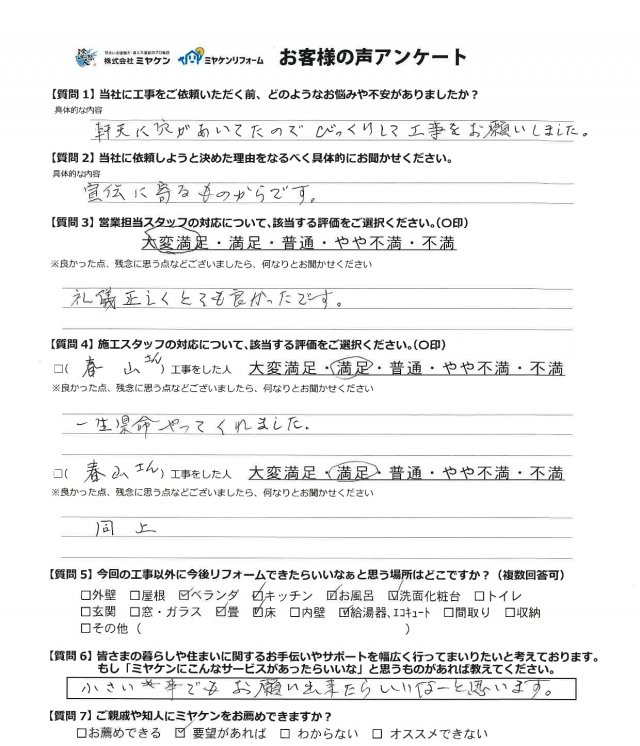 住まいの塗替え・省エネ塗装のプロ集団
株式会社 ミヤケン ミヤケンリフォーム お客様の声アンケート
【質問1】当社に工事をご依頼いただく前、どのようなお悩みや不安がありましたか?
具体的な内容
軒天に穴があいてたのでびっくりして工事をお願いしました。
【質問2】当社に依頼しようと決めた理由をなるべく具体的にお聞かせください。
具体的な内容
宣伝に寄るものからです。
【質問3】営業担当スタッフの対応について、該当する評価をご選択ください。(○印)
大変満足・満足・普通・やや不満・不満
※良かった点、残念に思う点などございましたら、何なりとお聞かせください
礼儀正しくとても良かったです。
【質問4】施工スタッフの対応について、該当する評価をご選択ください。(○印)
□(春山さん)工事をした人 大変満足・満足・普通・やや不満・不満
※良かった点、残念に思う点などございましたら、何なりとお聞かせください
一生県命やってくれました。
□(春山さん)工事をした人 大変満足・満足・普通・やや不満・不満
※良かった点、残念に思う点などございましたら、何なりとお聞かせください
同上
【質問5】今回の工事以外に今後リフォームできたらいいなぁと思う場所はどこですか?(複数回答可)
□外壁 □屋根 ☑ベランダ ☑キッチン ☑お風呂 ☑洗面化粧台 □トイレ
□玄関 □窓・ガラス ☑畳 ☑床 □内壁 ☑給湯器、エコキュート □間取り □収納
□その他( )
【質問6】皆さまの暮らしや住まいに関するお手伝いやサポートを幅広く行ってまいりたいと考えております。
もし「ミヤケンにこんなサービスがあったらいいな」と思うものがあれば教えてください。
小さい事でもお願い出来たらいいなーと思います。
【質問7】ご親戚や知人にミヤケンをお薦めできますか?
□お薦めできる ☑要望があれば □わからない □オススメできない